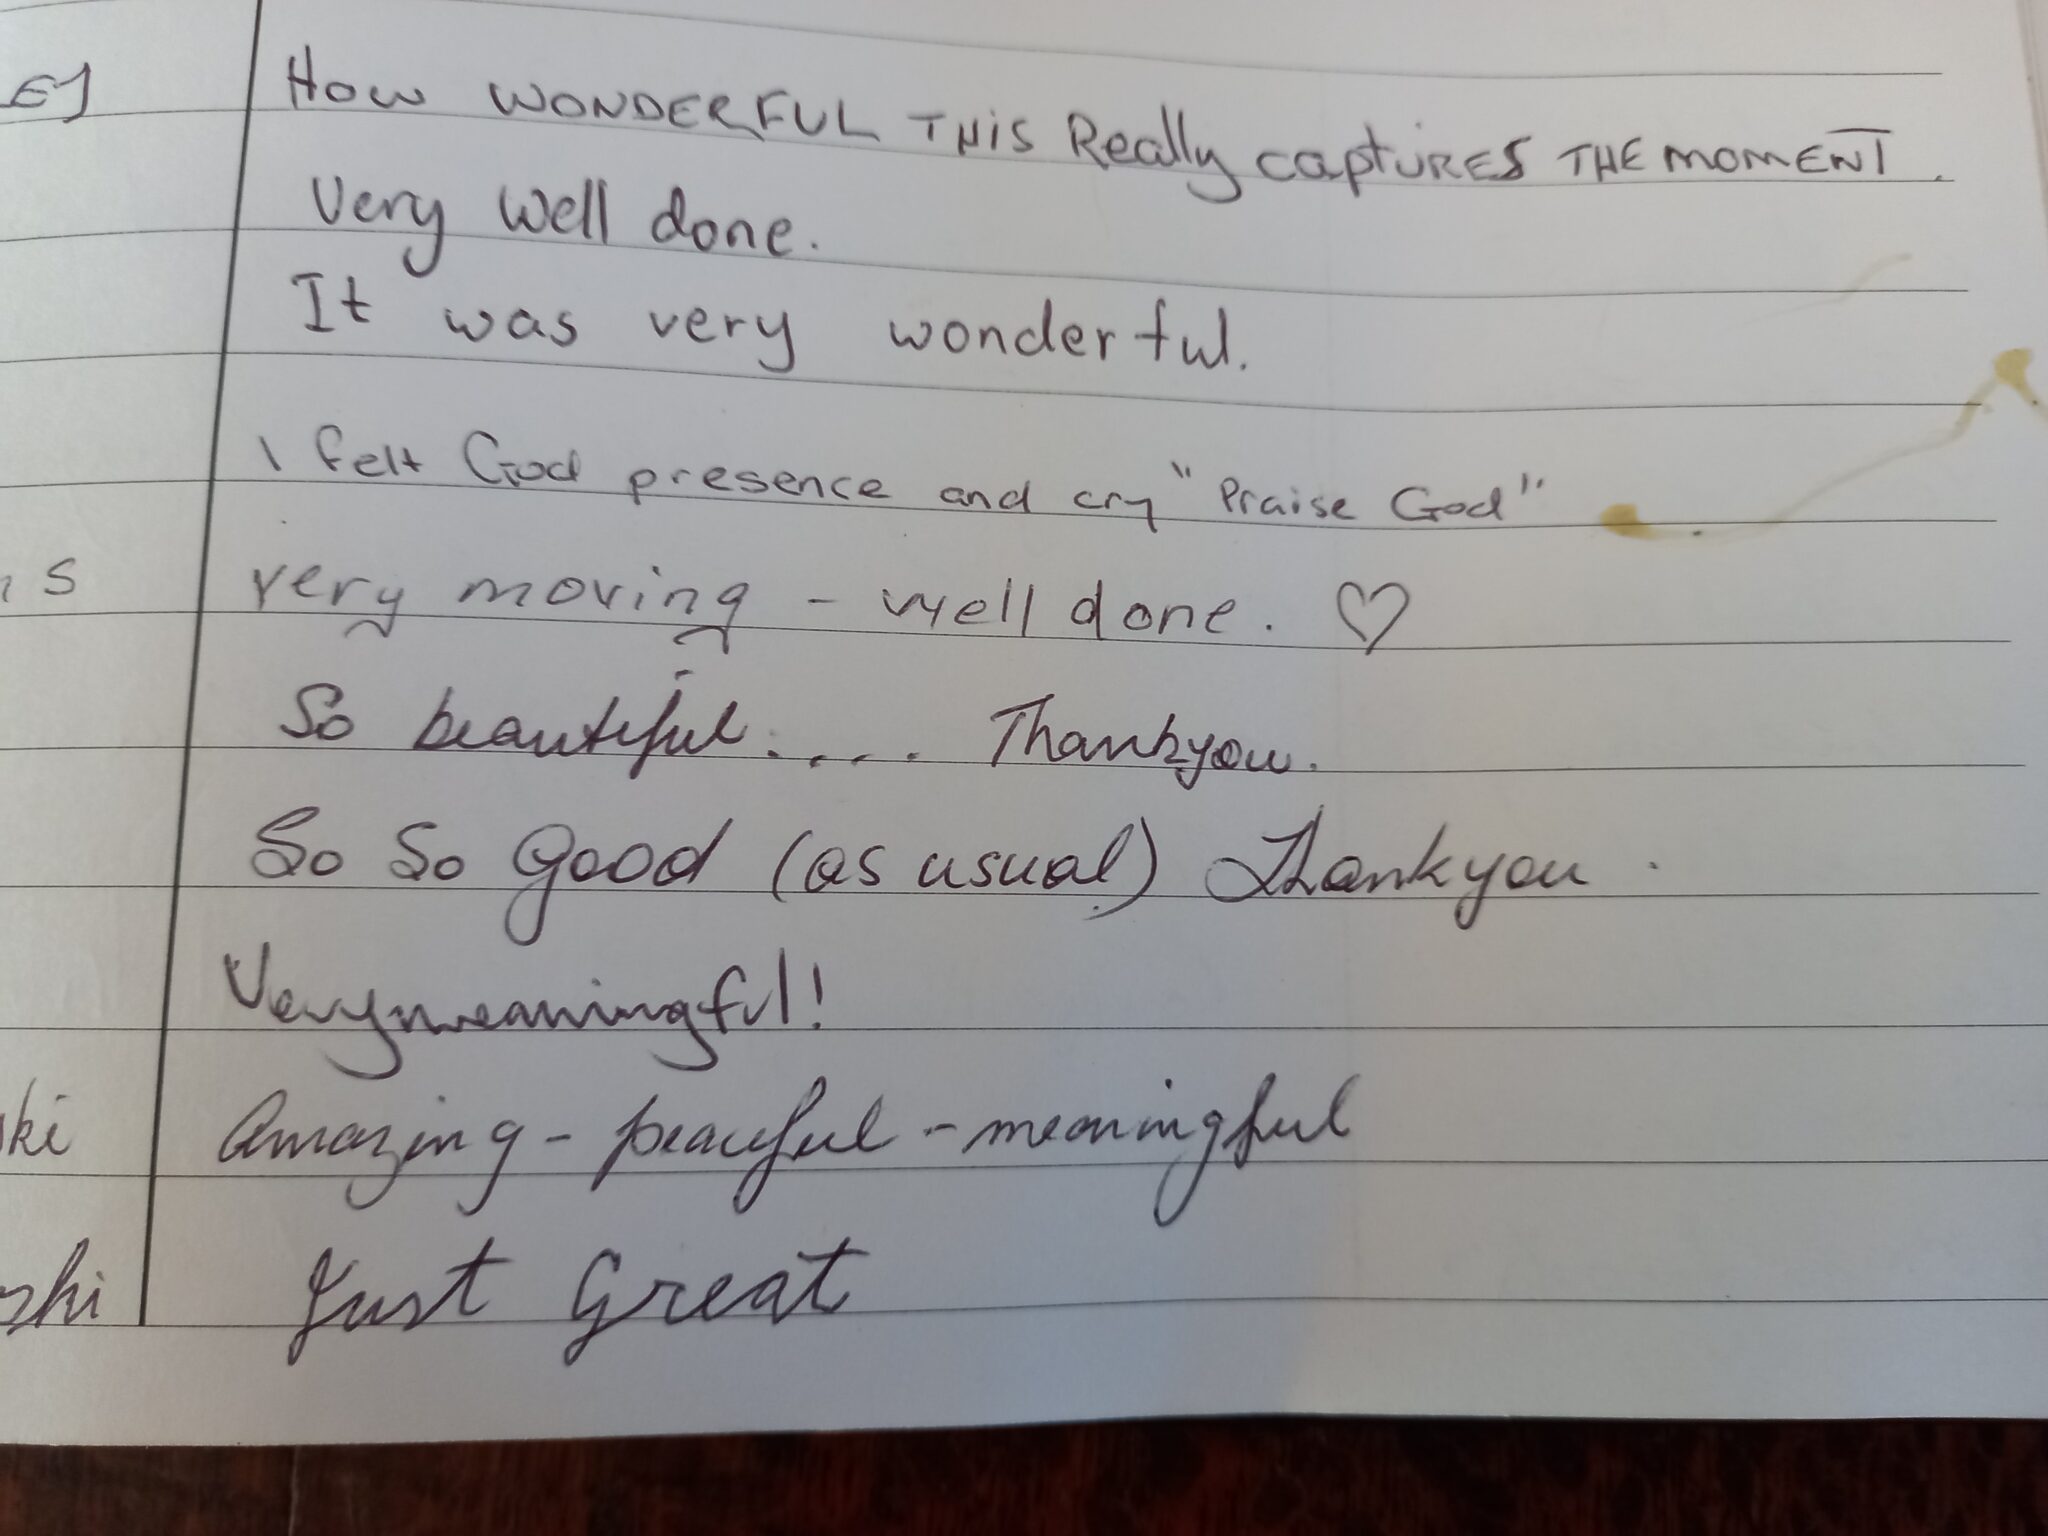 How WONDERFUL THIS Really captURES THE MOMENT.
Very well done.
It was very wonderful.
I felt God presence and cry "Praise God"
very moving - well done. ♡
So beautiful.... Thankyou.
So So Good (as usual) Thankyou.
Very meaningful!
ki Amazing - peaceful - meaningful
Just Great